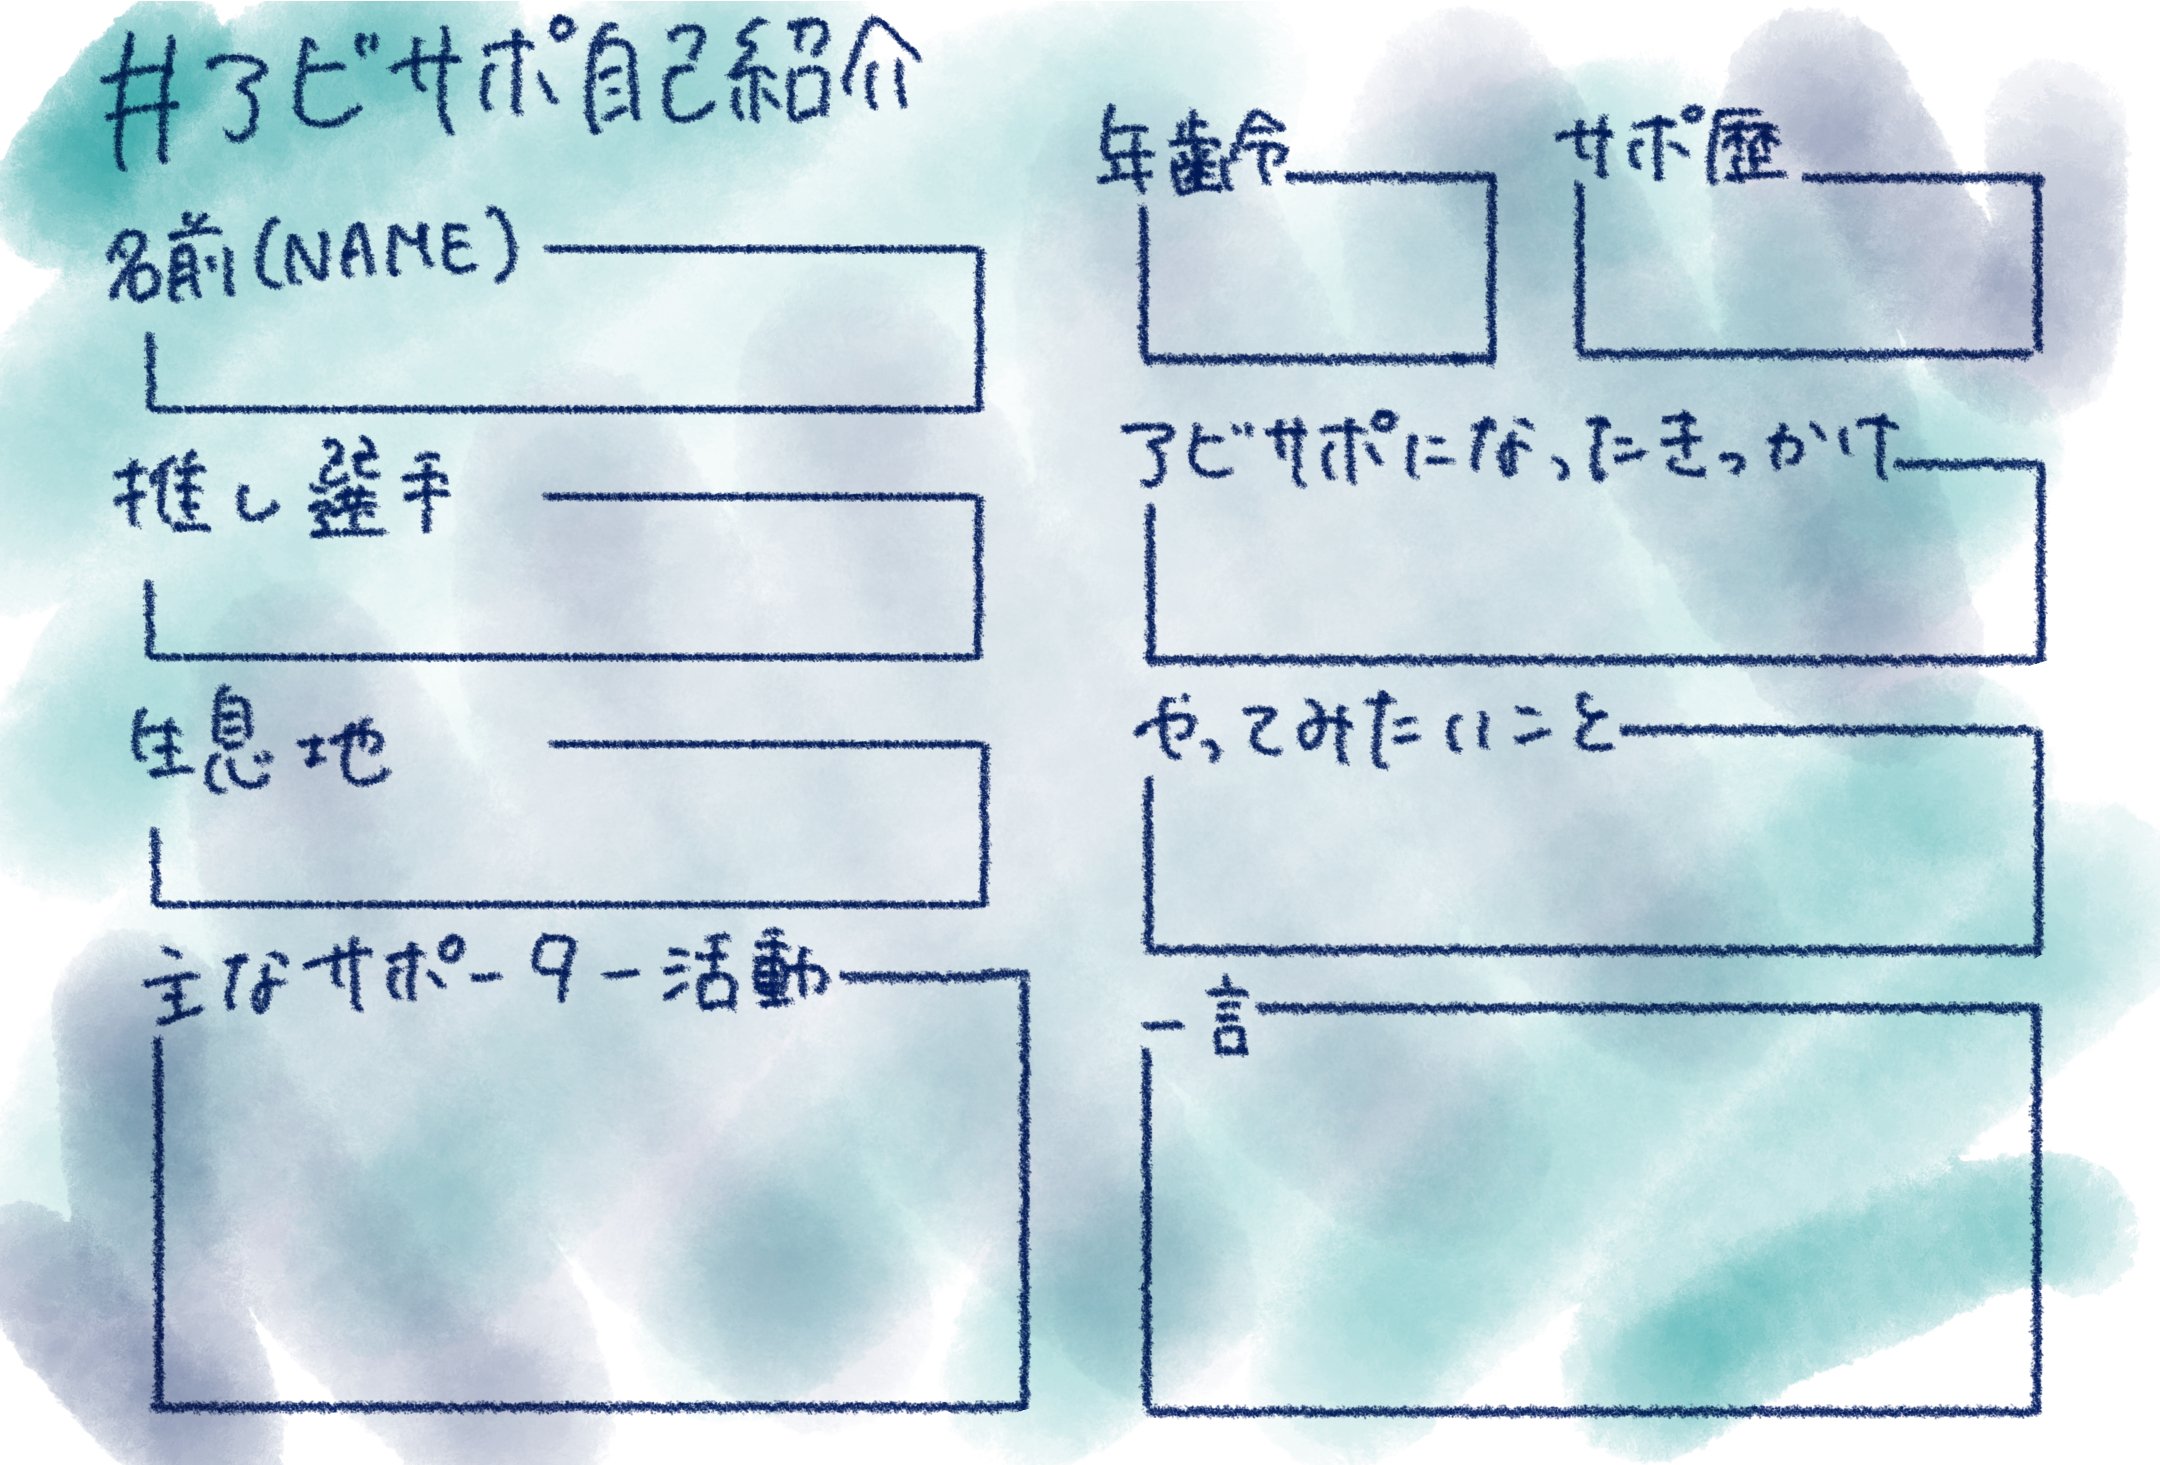 #アビサポ自己紹介
名前(NAME)
推し選手
生息地
主なサポーター活動
年齢
サポ歴
アビサポになったきっかけ
やってみたいこと
一言